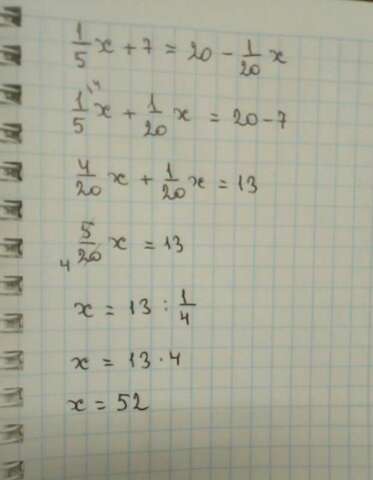 1/5 x + 7 = 20 - 1/20 x
1/5 \4 x + 1/20 x = 20 - 7
4/20 x + 1/20 x = 13
5/20 4 x = 13
x = 13 : 1/4
x = 13 · 4
x = 52